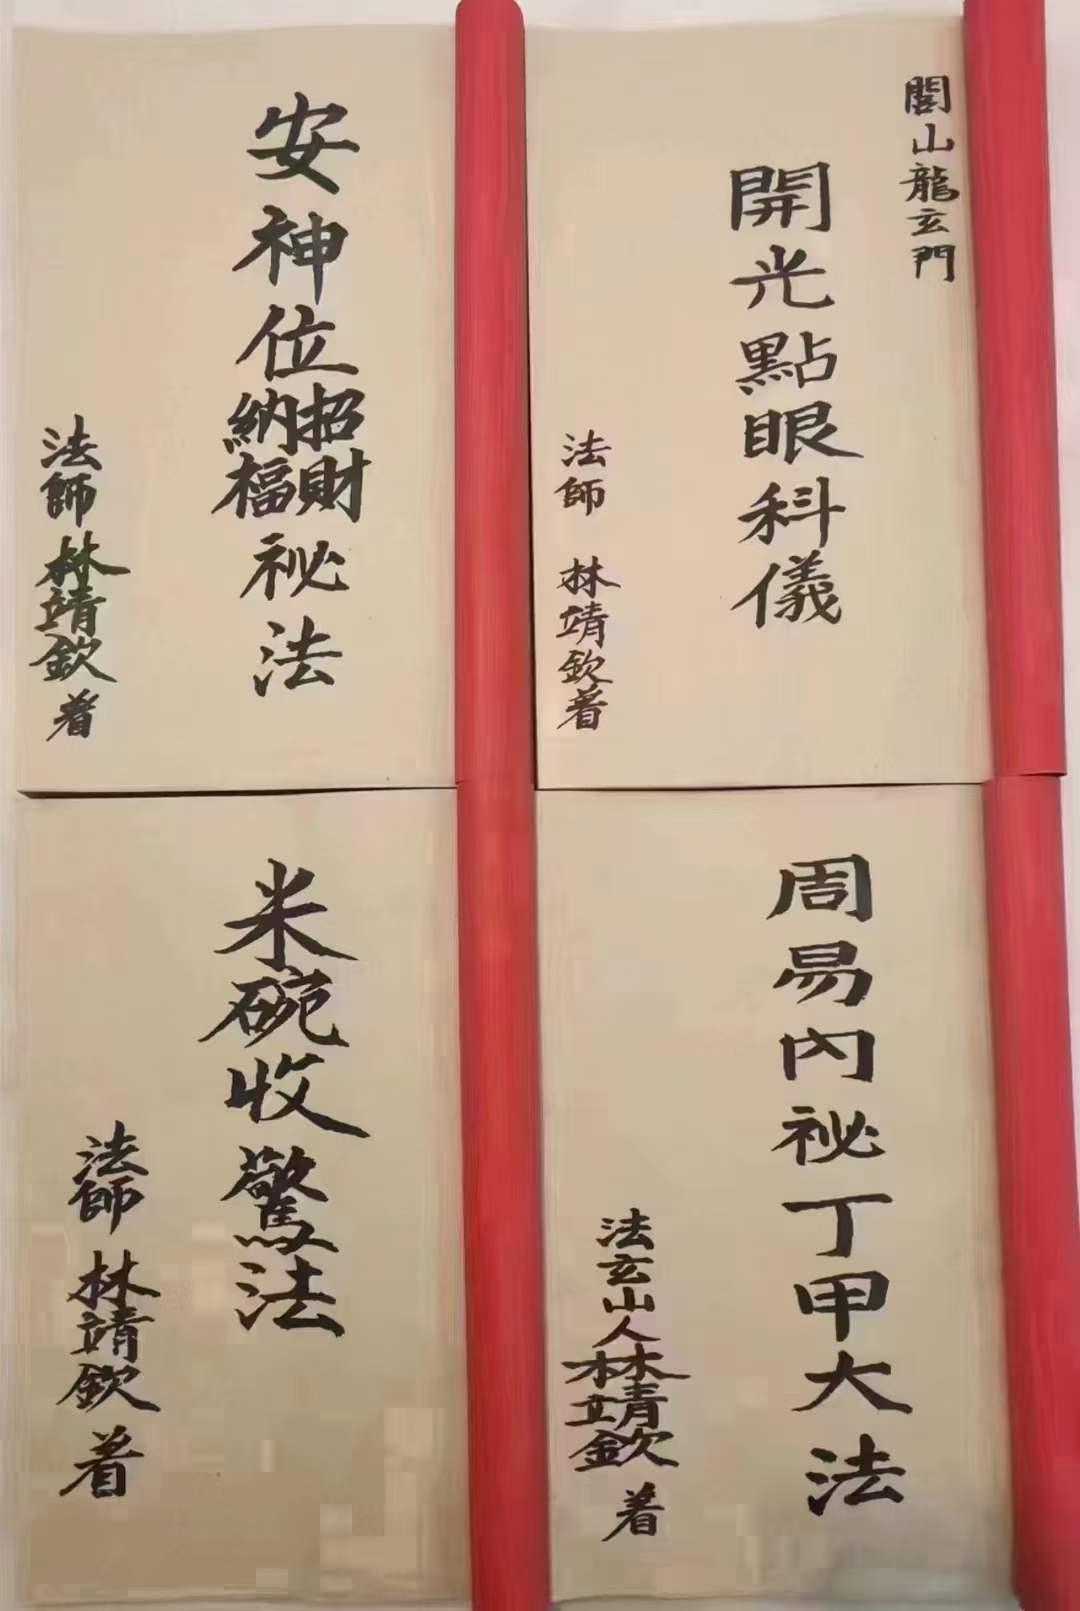 閭山龍玄門
開光點眼科儀
法師 林靖欽着
安神位招財納福祕法
法師林靖欽着
周易內祕丁甲大法
法玄山人林靖欽 着
米碗收驚法
法師 林靖欽 着